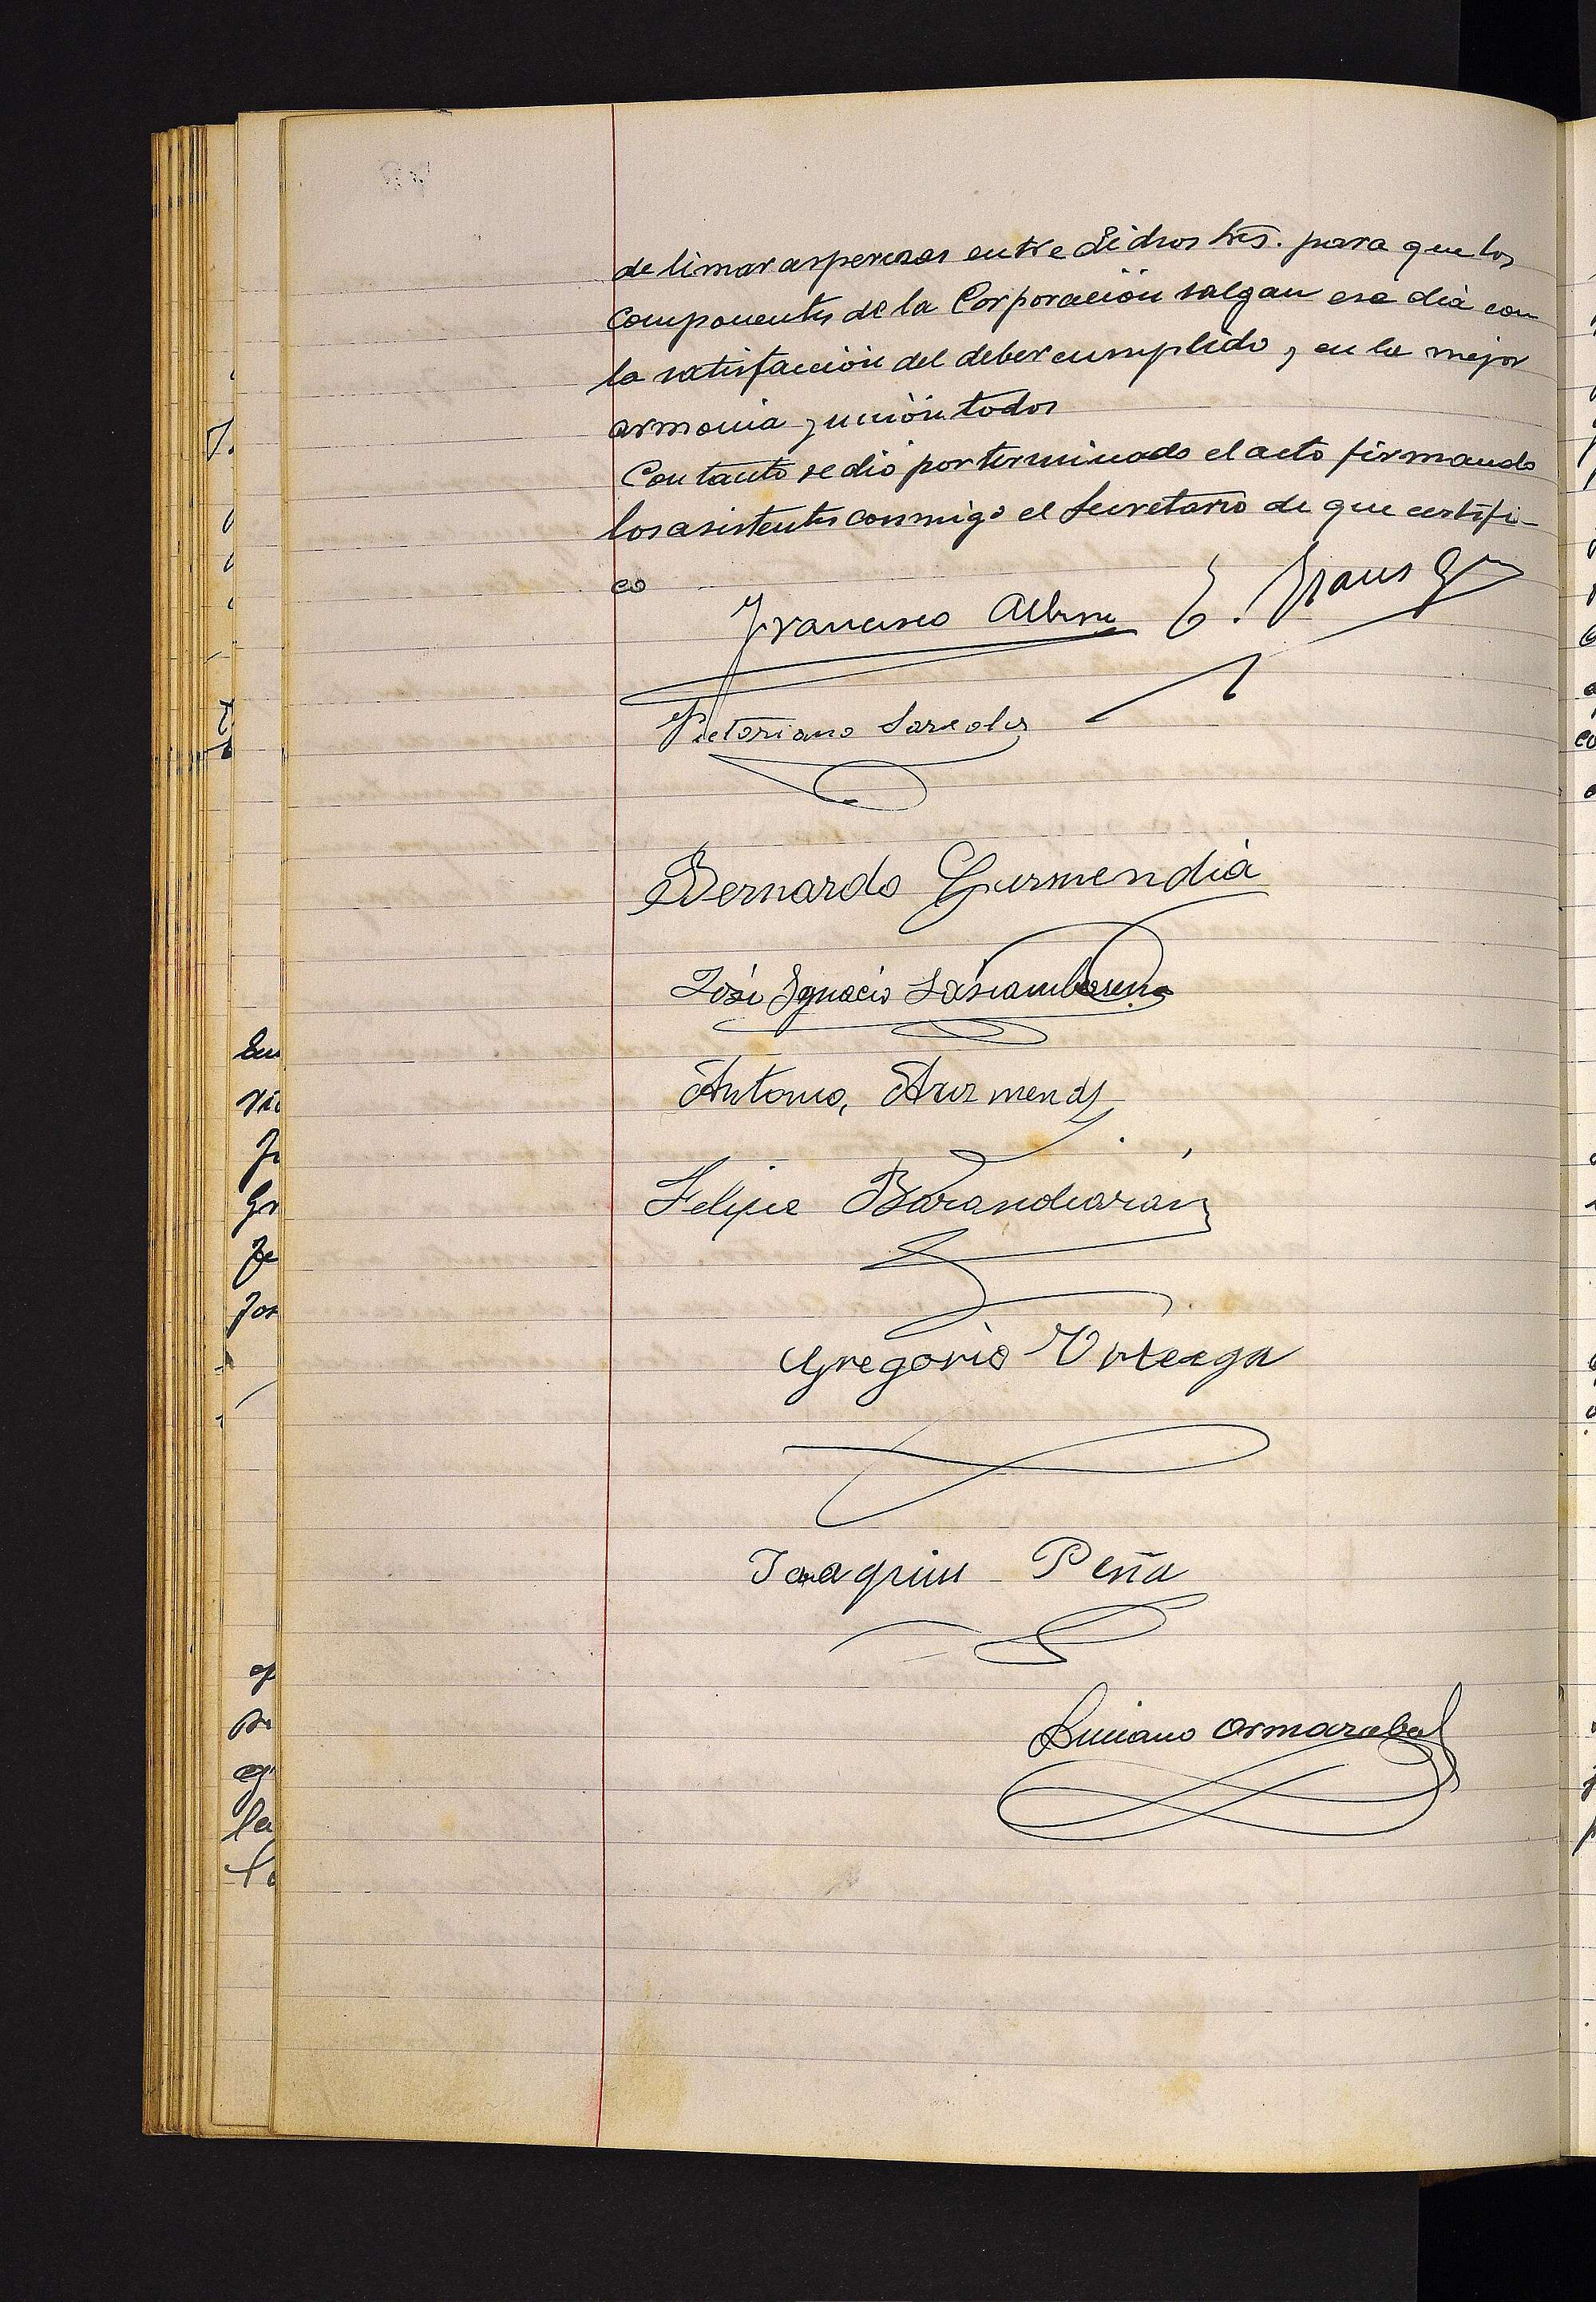 de limar asperezas entre dichos Sres. para que los
componentes de la Corporación salgan ese dia con
la satisfacción del deber cumplido y en la mejor
armonia y unión todos
Con tanto se dió por terminado el acto firmando
los asistentes conmigo el Secretario de que certifi-
co
Francisco
Victoriano
Bernardo Gurmendia
José Ignacio Lasciambarena
Antonio, Arizmendi
Felipe Barandiarán
Gregorio Urteaga
Joaquin Peña
Luciano Ormazabal